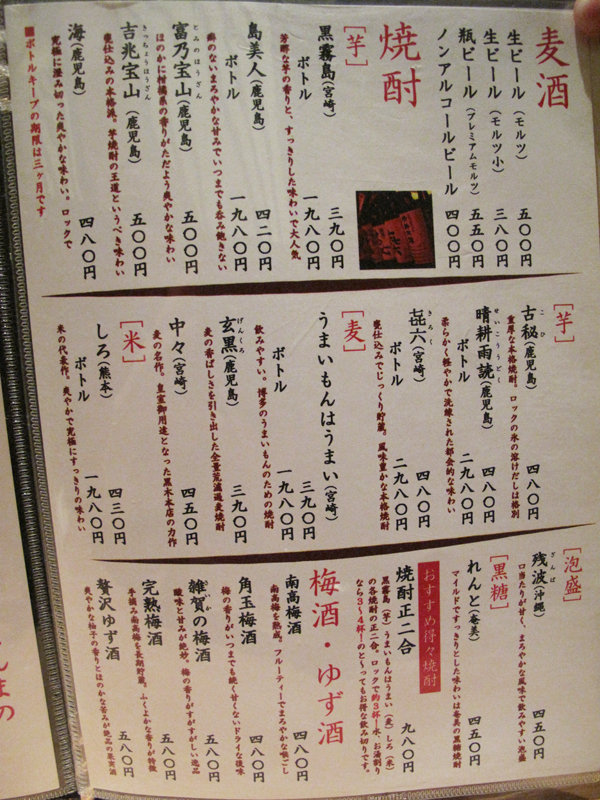 麦酒
生ビール（モルツ） 五〇〇円
生ビール（モルツ小） 三八〇円
瓶ビール（プレミアムモルツ） 五五〇円
ノンアルコールビール 四〇〇円
焼酎
［芋］
黒霧島（宮崎） 三九〇円
ボトル 一九八〇円
芳醇な芋の香りと、すっきりした味わいで大人気
島美人（鹿児島） 四二〇円
ボトル 一九八〇円
癖のないまろやかな甘みでいつまでも呑み飽きない
とみのほうざん
富乃宝山（鹿児島） 五〇〇円
ほのかに柑橘系の香りがただよう爽やかな味わい
きっちょうほうざん
吉兆宝山（鹿児島） 五〇〇円
甕仕込みの本格派。芋焼酎の王道というべき味わい
海（鹿児島） 四八〇円
究極に澄み切った爽やかな味わい。ロックで
■ボトルキープの期限は三ヶ月です
［芋］
こひ
古秘（鹿児島） 四八〇円
重厚な本格焼酎。ロックの氷の溶けだしは格別
せいこううどく
晴耕雨読（鹿児島） 四八〇円
ボトル 二九八〇円
柔らかく軽やかで洗練された都会的な味わい
きろく
㐂六（宮崎） 四八〇円
ボトル 二九八〇円
甕仕込みでじっくり貯蔵。風味豊かな本格焼酎
［麦］
うまいもんはうまい（宮崎） 三九〇円
ボトル 一九八〇円
飲みやすい。博多のうまいもんのための焼酎
げんくろ
玄黒（鹿児島） 三九〇円
麦の香ばしさを引き出した全量荒濾過麦焼酎
中々（宮崎） 四五〇円
麦の名作。皇室御用達となった黒木本店の力作
［米］
しろ（熊本） 四三〇円
ボトル 一九八〇円
米の代表作。爽やかで究極にすっきりの味わい
［泡盛］
ざんぱ
残波（沖縄） 四五〇円
口当たりが甘く、まろやかな風味で飲みやすい泡盛
［黒糖］
れんと（奄美） 四五〇円
マイルドですっきりとした味わいは奄美の黒糖焼酎
おすすめ得々焼酎
焼酎正二合 九八〇円
黒霧島（芋）うまいもんはうまい（麦）しろ（米）
の各焼酎の正二合。ロックで約3杯！水、お湯割り
なら3〜4杯！のと〜ってもお得な飲み切りです。
梅酒・ゆず酒
南高梅酒 四八〇円
南高梅を熟成。フルーティーでまろやかな喉ごし
角玉梅酒 四八〇円
梅の香りがいつまでも続く甘くないドライな後味
さいか
雑賀の梅酒 五八〇円
酸味と甘みが絶妙。梅の香りがすがすがしい逸品
完熟梅酒 五八〇円
手摘み南高梅を長期貯蔵。ふくよかな香りが特徴
贅沢ゆず酒 五八〇円
爽やかな柚子の香りとほのかな苦みが絶品の果実酒
んまの